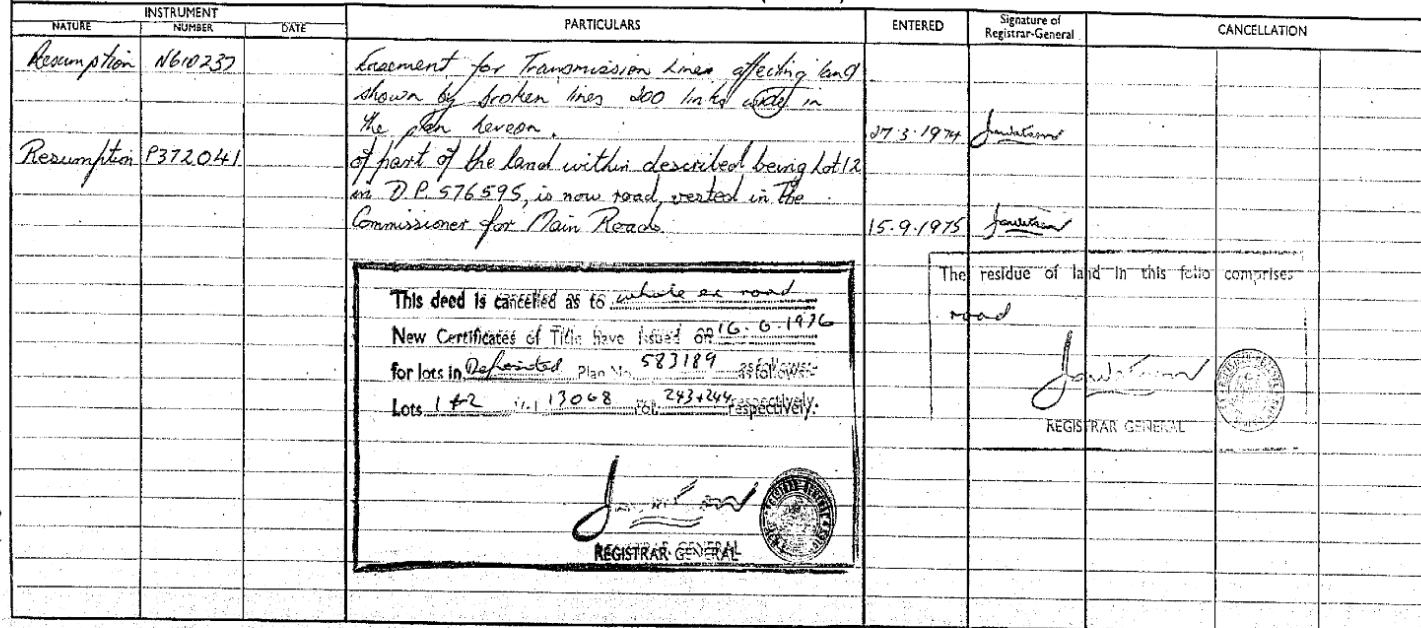 INSTRUMENT
NATURE NUMBER DATE PARTICULARS ENTERED Signature of Registrar-General CANCELLATION
Resumption N610237 Easement for Transmission Lines affecting land
shown by broken lines 200 links wide in
the plan hereon. 27.3.1974
Resumption P372041 of part of the land within described being Lot 12
in D.P. 576595, is now road, vested in the
Commissioner for Main Roads. 15.9.1975
This deed is cancelled as to whole ex road
New Certificates of Title have issued on 16.6.1976
for lots in Deposited Plan No. 583189 as follows:-
Lots 1 & 2 Vol 13068 Fol. 243 + 244 respectively.
REGISTRAR GENERAL
The residue of land in this folio comprises
road
REGISTRAR GENERAL